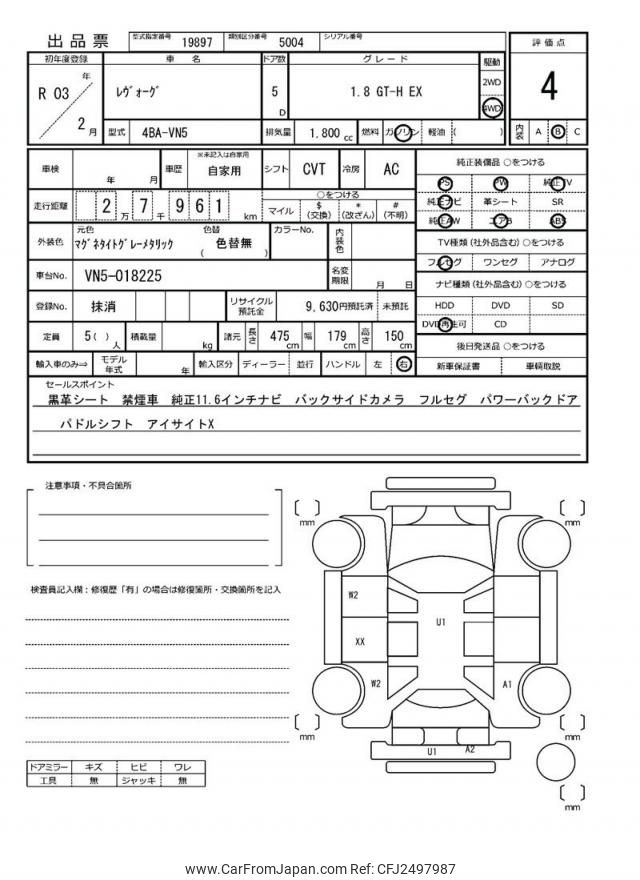 出品票 型式指定番号 19897 類別区分番号 5004 シリアル番号
初年度登録 車名 ドア数 グレード 駆動 評価点
R 03 年 2 月 レヴォーグ 5 D 1.8 GT-H EX 2WD 4WD 4
型式 4BA-VN5 排気量 1.800 cc 燃料 ガソリン 軽油 ( ) 内装 A B C
車検 年 月 車歴 ※未記入は自家用 自家用 シフト CVT 冷房 AC 純正装備品 ○をつける
PS PW 純正TV
走行距離 2 万 7 千 9 6 1 km ○をつける
マイル $ (交換) * (改ざん) # (不明)
純正ナビ 革シート SR
純正AW エアB ABS
外装色 元色 マグネタイトグレーメタリック 色替 ( 色替無 ) カラーNo. 内装色
TV種類 (社外品含む) ○をつける
フルセグ ワンセグ アナログ
車台No. VN5-018225 名変期限 月 日
ナビ種類 (社外品含む) ○をつける
登録No. 抹消 リサイクル預託金 9,630円預託済 未預託
HDD DVD SD
DVD再生可 CD
定員 5 ( ) 人 積載量 kg 諸元 長さ 475 cm 幅 179 cm 高さ 150 cm
後日発送品 ○をつける
輸入車のみ⇒ モデル年式 年 輸入区分 ディーラー 並行 ハンドル 左 右
新車保証書 車輌取説
セールスポイント
黒革シート 禁煙車 純正11.6インチナビ バックサイドカメラ フルセグ パワーバックドア
パドルシフト アイサイトX
注意事項・不具合箇所
検査員記入欄：修復歴「有」の場合は修復箇所・交換箇所を記入
[ ] mm [ ] mm
W2
U1
XX
W2 A1
[ ] mm [ ] mm
U1 A2
[ ] mm
ドアミラー キズ ヒビ ワレ
工具 無 ジャッキ 無
www.CarFromJapan.com Ref: CFJ2497987